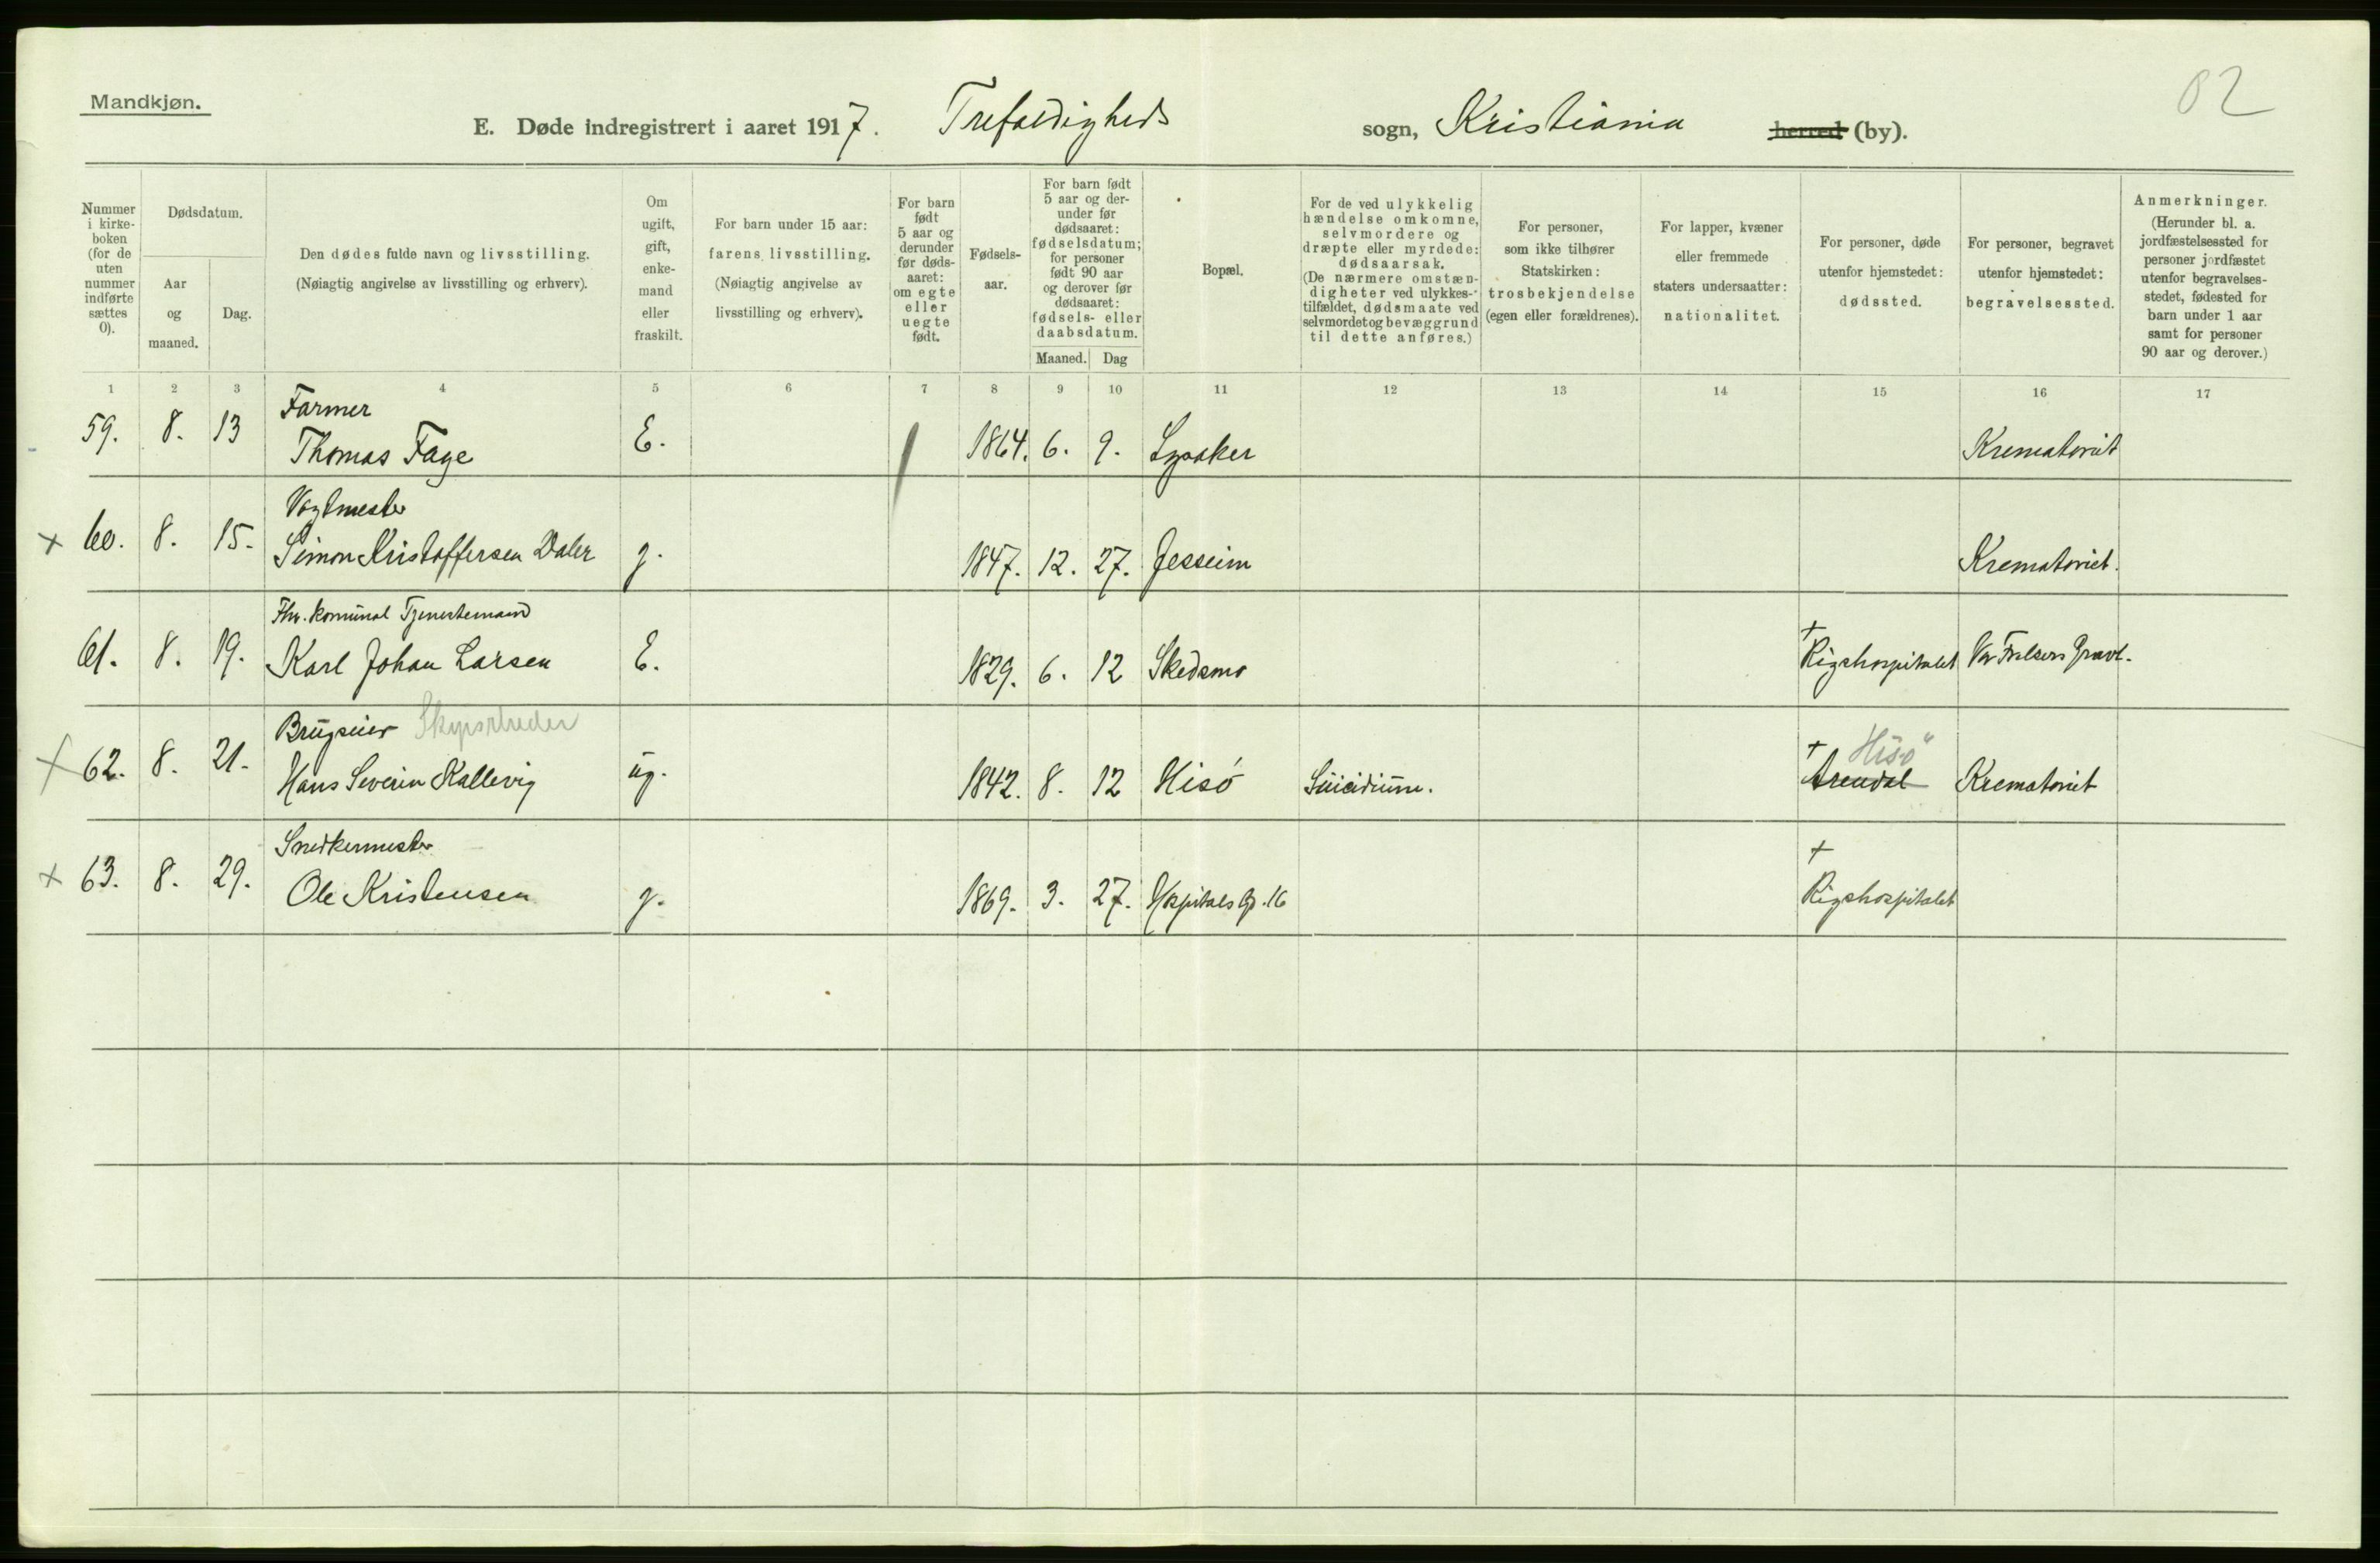 Mandkjøn.
02
E. Døde indregistrert i aaret 1917. Trefoldigheds sogn, Kristiania herred (by).
Nummer i kirkeboken (for de uten nummer indførte sættes 0).
Dødsdatum.
Aar og maaned.
Dag.
Den dødes fulde navn og livsstilling.
(Nøiagtig angivelse av livsstilling og erhverv).
Om ugift, gift, enkemand eller fraskilt.
For barn under 15 aar:
farens livsstilling.
(Nøiagtig angivelse av livsstilling og erhverv).
For barn født 5 aar og derunder før dødsaaret: om egte eller uegte født.
Fødselsaar.
For barn født 5 aar og derunder før dødsaaret: fødselsdatum; for personer født 90 aar og derover før dødsaaret: fødsels- eller daabsdatum.
Maaned. Dag
Bopæl.
For de ved ulykkelig hændelse omkomne, selvmordere og dræpte eller myrdede: dødsaarsak.
(De nærmere omstændigheter ved ulykkestilfældet, dødsmaate ved selvmordet og bevæggrund til dette anføres.)
For personer, som ikke tilhører Statskirken: trosbekjendelse (egen eller forældrenes).
For lapper, kvæner eller fremmede staters undersaatter: nationalitet.
For personer, døde utenfor hjemstedet: dødssted.
For personer, begravet utenfor hjemstedet: begravelsessted.
Anmerkninger.
(Herunder bl. a. jordfæstelsessted for personer jordfæstet utenfor begravelsesstedet, fødested for barn under 1 aar samt for personer 90 aar og derover.)
1 2 3 4 5 6 7 8 9 10 11 12 13 14 15 16 17
Farmer
59. 8. 13 Thomas Faye E. 1864. 6. 9. Lysaker Krematoriet
Vagtmester
+ 60. 8. 15. Simon Kristoffersen Daler g. 1847. 12. 27. Jesseim Krematoriet.
Fhv. komunal Tjenestemand
61. 8. 19. Karl Johan Larsen E. 1829. 6. 12 Skedsmo + Rigshospitalet Vor Frelsers Gravl.
Brugseier Skipsrheder
+ 62. 8. 21. Hans Severin Kallevig ug. 1842. 8. 12 Hisö Suicidium. + Arendal Hisö Krematoriet
Snedkermester
+ 63. 8. 29. Ole Kristensen g. 1869. 3. 27. Hospitals G. 16 + Rigshospitalet